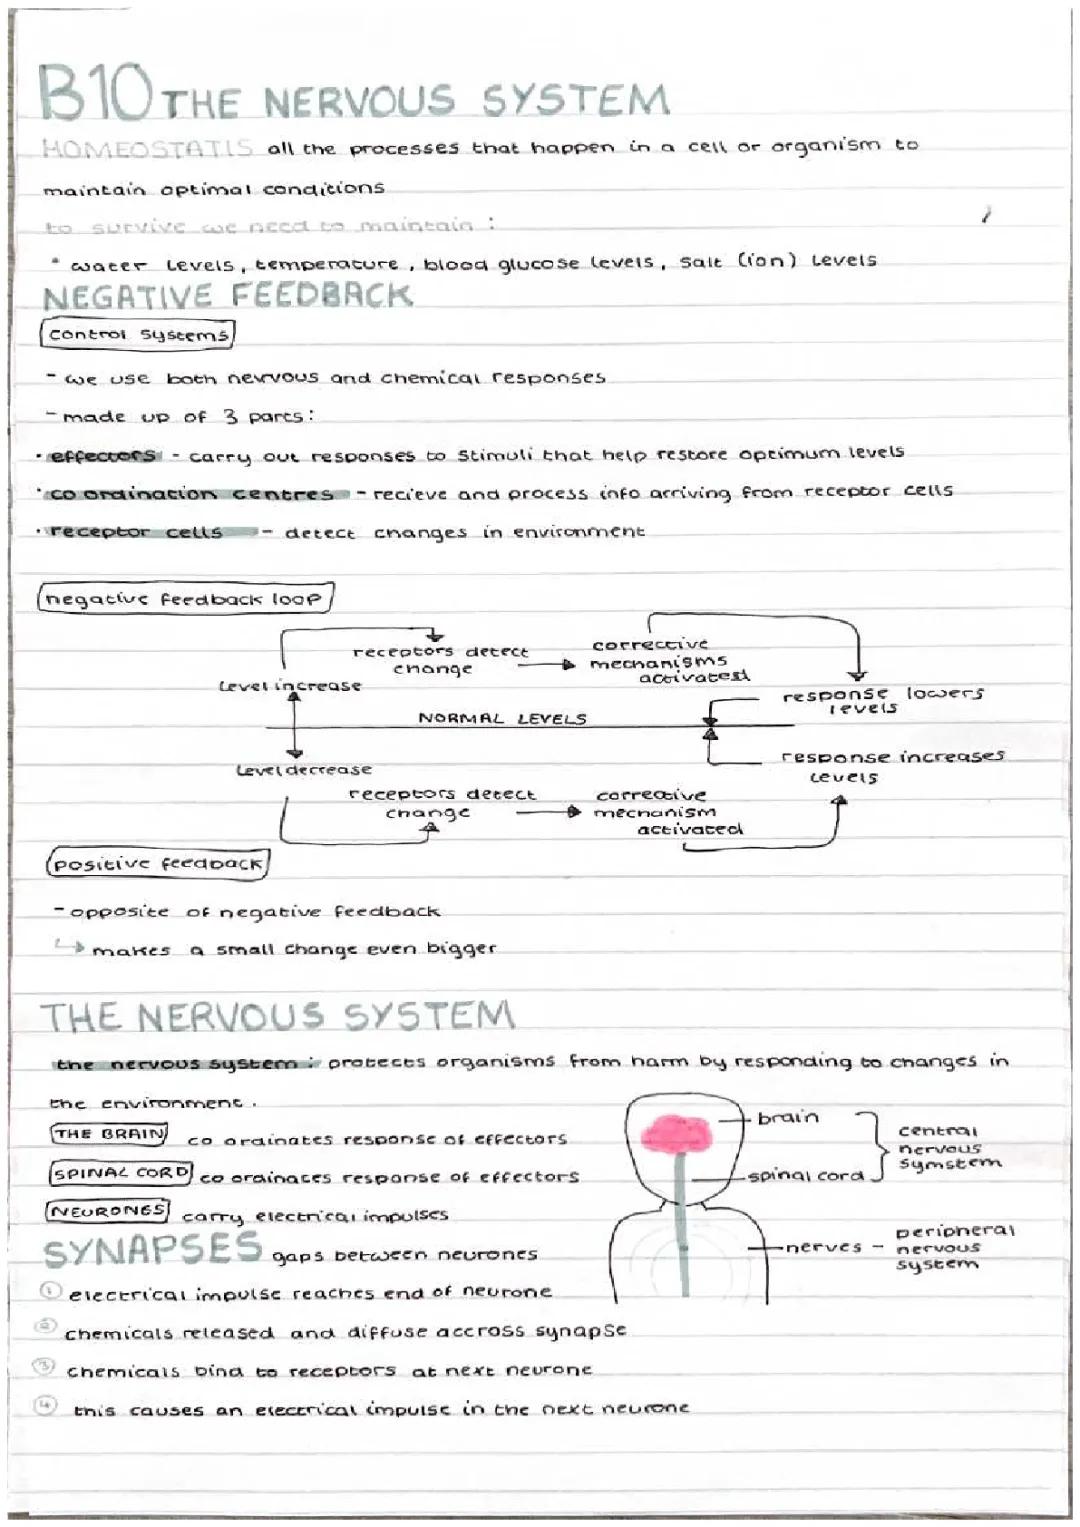 B10 THE NERVOUS SYSTEM
HOMEOSTATIS all the processes that happen in a cell or organism to
maintain optimal conditions
to survive we need to maintain :
* water levels, temperature, blood glucose levels, salt (ion) levels
NEGATIVE FEEDBACK
control systems
- we use both nervous and chemical responses
- made up of 3 parts:
· effectors - carry out responses to stimuli that help restore optimum levels
· co ordination centres - recieve and process info arriving from receptor cells
· receptor cells - detect changes in environment
negative feedback loop
receptors detect
change
corrective
mechanisms
activated
level increase
response lowers
levels
NORMAL LEVELS
response increases
levels
level decrease
receptors detect
change
corrective
mechanism
activated
positive feedback
- opposite of negative feedback
↳ makes a small change even bigger
THE NERVOUS SYSTEM
the nervous system : protects organisms from harm by responding to changes in
the environment.
THE BRAIN co ordinates response of effectors
SPINAL CORD co ordinates response of effectors
NEURONES carry electrical impulses
brain
spinal cord
central
nervous
symstem
nerves - peripheral
nervous
system
SYNAPSES gaps between neurones
① electrical impulse reaches end of neurone
② chemicals released and diffuse accross synapse
③ chemicals bind to receptors at next neurone
④ this causes an electrical impulse in the next neurone